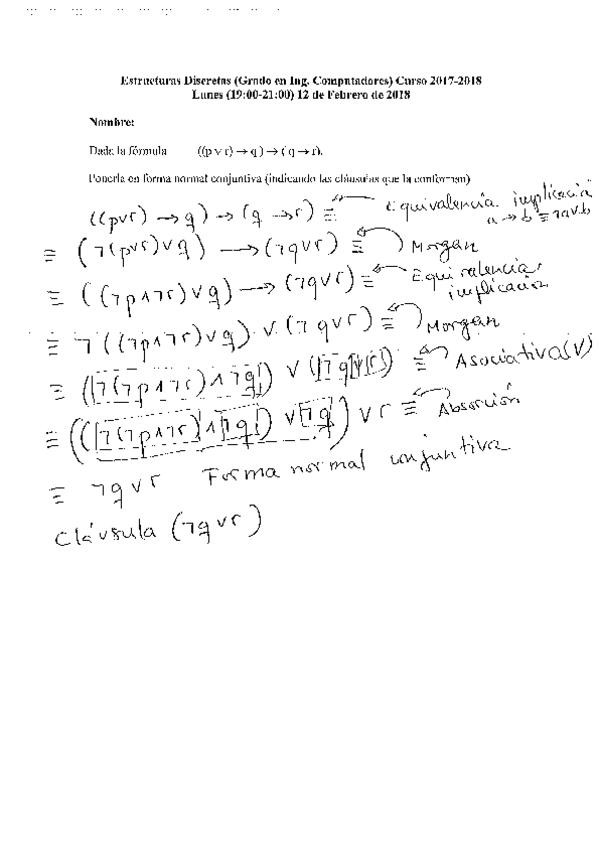 Estructuras Discretas (Grado en Ing. Computadores) Curso 2017-2018
Lunes (19:00-21:00) 12 de Febrero de 2018
Nombre:
Dada la fórmula ((p ∨ r) → q ) → ( q → r),
Ponerla en forma normal conjuntiva (indicando las cláusulas que la conforman)
((p∨r) → q) → (q → r) ≡ Equivalencia implicació
a → b ≡ ¬a∨b
≡ (¬(p∨r)∨q) → (¬q∨r) ≡ Morgan
≡ ((¬p∧¬r)∨q) → (¬q∨r) ≡ Equivalencia
implicación
≡ ¬((¬p∧¬r)∨q) ∨ (¬q∨r) ≡ Morgan
≡ (¬(¬p∧¬r)∧¬q) ∨ (¬q∨r) ≡ Asociativa(∨)
≡ ((¬(¬p∧¬r)∧¬q) ∨ ¬q) ∨ r ≡ Absorción
≡ ¬q ∨ r Forma normal conjuntiva
Cláusula (¬q∨r)